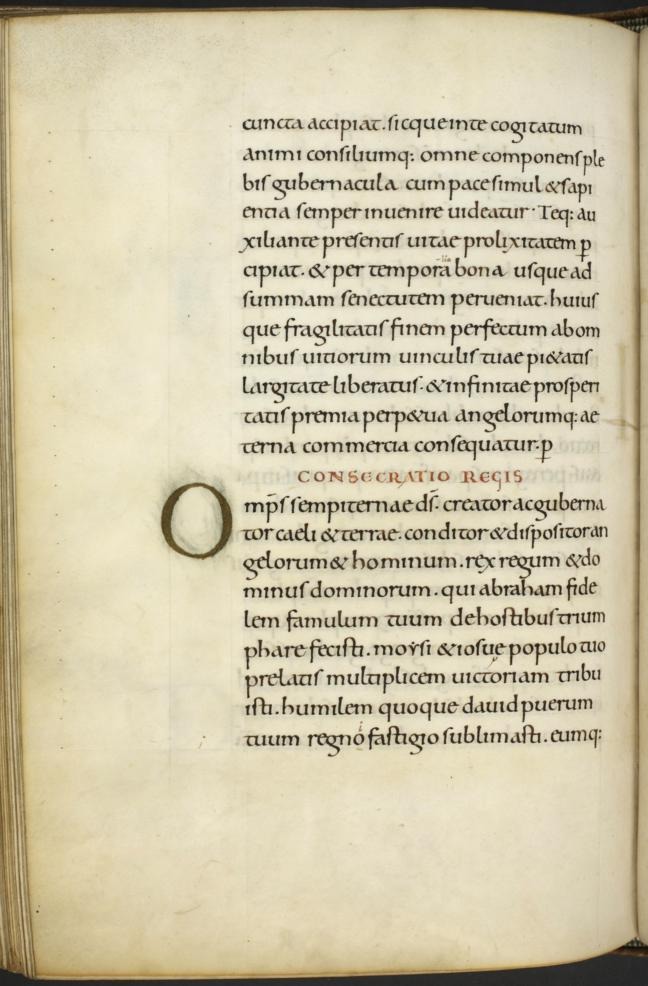 cuncta accipiat. sicque in te cogitatum
animi consiliumq: omne componens ple
bis gubernacula cum pace simul & sapi
entia semper inuenire uideatur. Teq: au
xiliante presentis uitae prolixitatem p̲
cipiat. & per tempora bona usque ad
summam senectutem perueniat. huius
que fragilitatis finem perfectum ab om
nibus uitiorum uinculis tuae pi&atis
largitate liberatus. & infinitae prosperi
tatis premia perp&ua angelorumq: ae
terna commercia consequatur. p̲
CONSECRATIO REGIS
Omp̄s sempiternae d̄s. creator ac guberna
tor caeli & terrae. conditor & dispositor an
gelorum & hominum. rex regum & do
minus dominorum. qui abraham fide
lem famulum tuum de hostibus trium
phare fecisti. moysi & iosue populo tuo
prelatis multiplicem uictoriam tribu
isti. humilem quoque dauid puerum
tuum regno fastigio sublimasti. eumq: